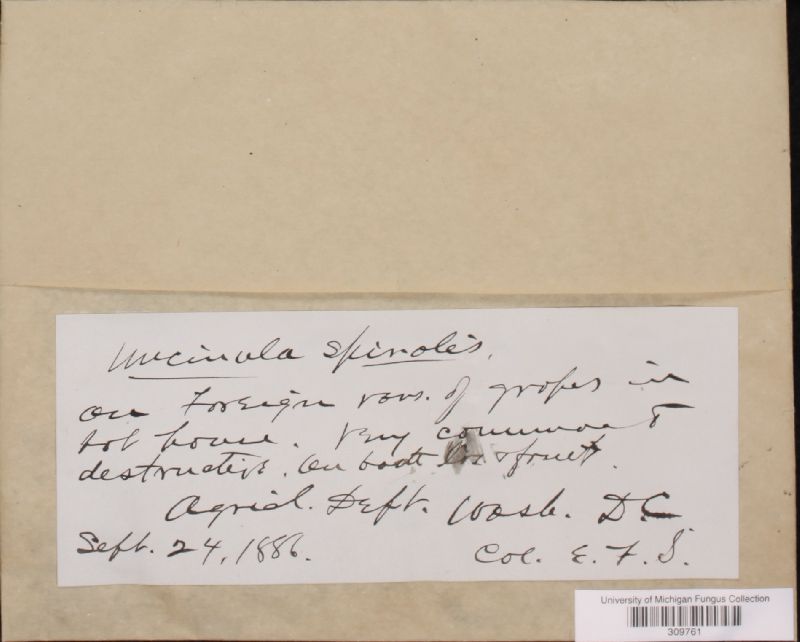 Uncinula spiralis.
on Foreign vars. of grapes in
hot house. Very common &
destructive. On both lvs. & fruit.
Agricl. Dept. Wash. D.C
Sept. 24, 1886. Col. E. F. S.
University of Michigan Fungus Collection
309761